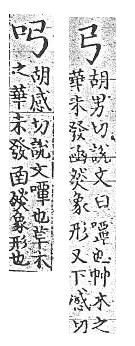 𢎘
胡男切說文曰嘾也艸木之
華未發函然象形又下感切
胡感切說文嘾也草木
之華未發函然象形也